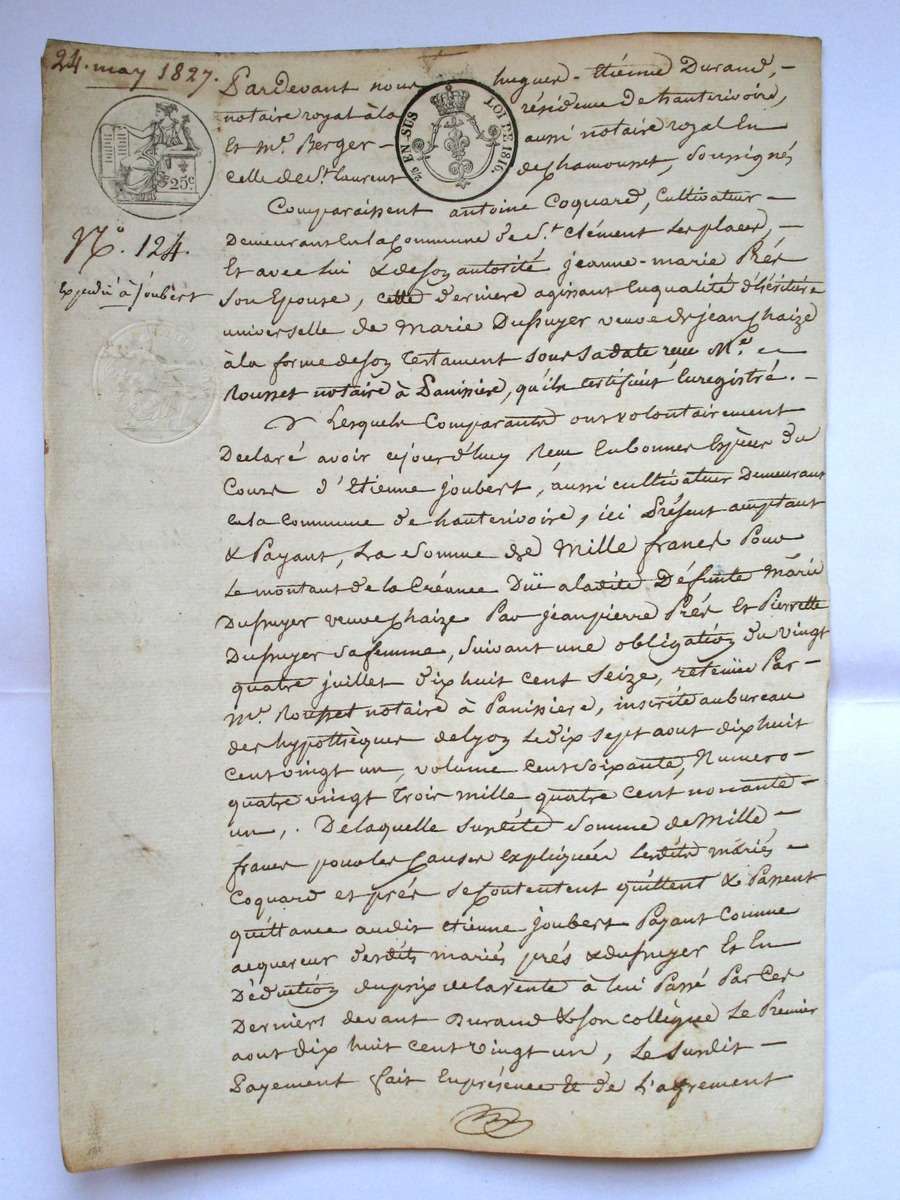 24. may 1827.
N.º 124.
Expédié à Joubert
25ᶜ
25 EN-SUS
LOI DE 1816.
Pardevant nous hugues-Etiénne Durand, -
notaire royal à la résidence de hauterivoire,
Et mᵉ. Berger - aussi notaire royal En
celle de Sᵗ. laurent de Chamousset, soussignés
Comparaissent antoine Coquard, Cultivateur -
Demeurant En la Commune de Sᵗ. Clément les places, -
Et avec lui & de son autorité jeanne-marie Prés
son Epouse, cette derniere agissant En qualité d'héritiere
universelle de Marie Dufnyer veuve de jean Chaize
à la forme de son Testament sous sa date reçu Mᵉ.
Rousset notaire à Panissiere, qu'ils certifient Enregistré. -
Lesquels Comparants ont volontairement
Declaré avoir cejourd'huy reçu En bonnes Espèces du
Cours d'Etienne joubert, aussi cultivateur Demeurant
En la Commune de hauterivoire, ici Présent acceptant
& Payant, La somme de Mille francs Pour
Le montant de la Créance Düe a ladite Défunte Marie
Dufnyer veuve Chaize Par jean pierre Prés Et Pierrette
Dufnyer sa femme, suivant une obligation du vingt
quatre juillet dix huit cent seize, retenüe Par -
Mᵉ. Rousset notaire à Panissiere, inscrite au bureau
des hypothèques de lyon le dix sept aout dix huit
cent vingt un, volume Cent soixante, Numero -
quatre vingt Trois mille quatre Cent nonante -
un,. De laquelle susdite somme de Mille -
francs pour les Causes Expliquées lesdits mariés
Coquard et prés se Contentent quittent & Passent
quittance audit Etienne joubert Payant Comme
acquereur desdits mariés prés & dufnyer Et En
Déduction du prix de la vente à lui Passé Par Ces
Derniers devant Durand & son collègue le Premier
aout dix huit cent vingt un, Le susdit -
Payement fait En présence & de L'agrement